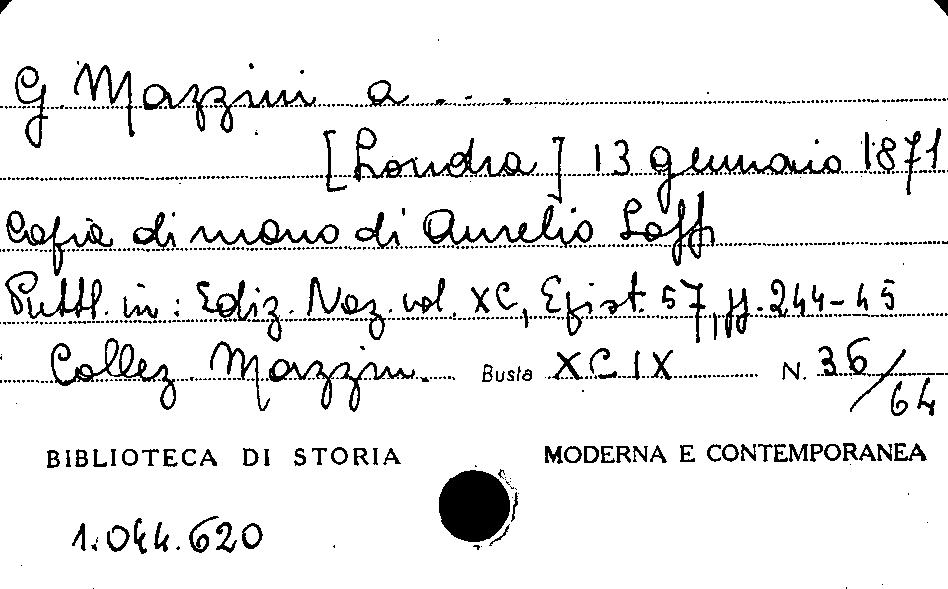 G. Mazzini a ...
[Londra] 13 gennaio 1871
Copia di mano di Aurelio Saffi
Pubbl. in: Ediz. Naz. vol. XC, Epist. 57, pp. 244-45
Collez. Mazzini. Busta XCIX N. 36/64
BIBLIOTECA DI STORIA MODERNA E CONTEMPORANEA
1.044.620